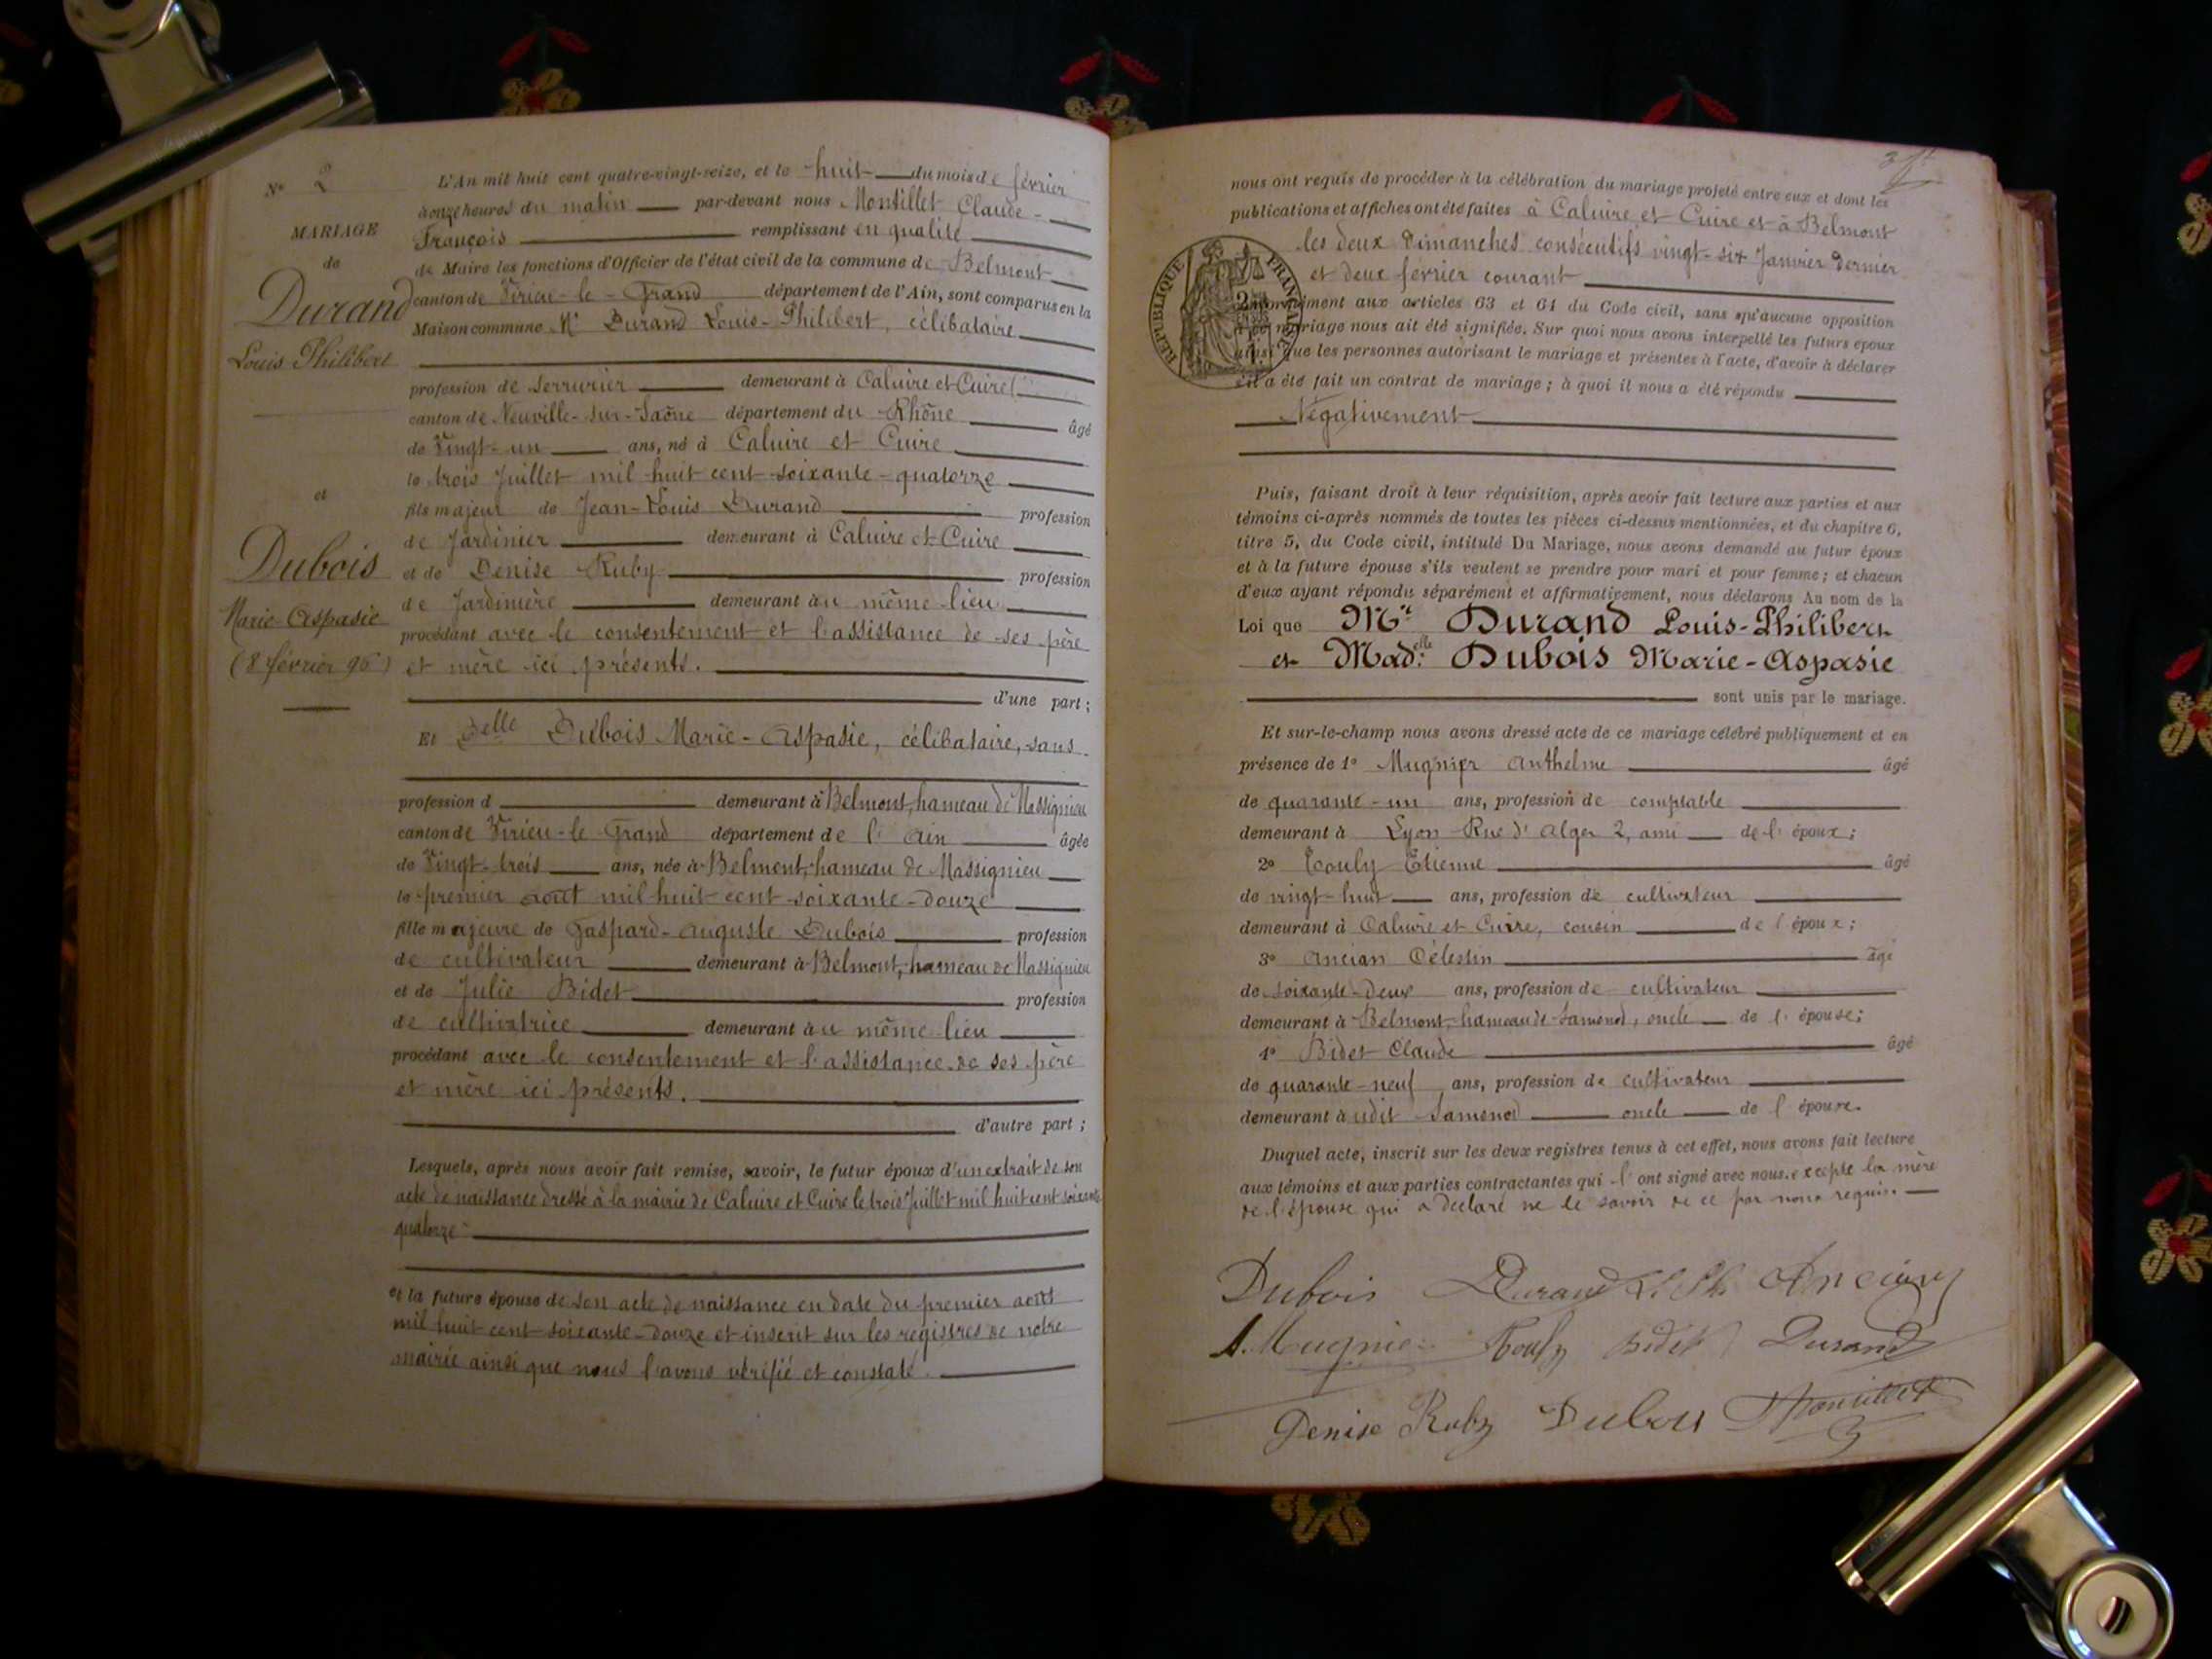 N° 2
MARIAGE
de
Durand
Louis-Philibert
et
Dubois
Marie-Aspasie
(8 février 96)
L'An mil huit cent quatre-vingt-seize, et le huit du mois de février
à onze heures du matin par-devant nous Montillet Claude-
François remplissant en qualité
de Maire les fonctions d'Officier de l'état civil de la commune de Belmont
canton de Virieu-le-Grand département de l'Ain, sont comparus en la
Maison commune Mr Durand Louis-Philibert, célibataire
profession de serrurier demeurant à Caluire et Cuire
canton de Neuville-sur-Saône département du Rhône âgé
de Vingt-un ans, né à Caluire et Cuire
le trois Juillet mil huit cent soixante-quatorze
fils majeur de Jean-Louis Durand profession
de Jardinier demeurant à Caluire et Cuire
et de Denise Ruby profession
de Jardinière demeurant au même lieu
procédant avec le consentement et l'assistance de ses père
et mère ici présents.
d'une part ;
Et Delle Dubois Marie-Aspasie, célibataire, sans
profession d demeurant à Belmont, hameau de Massignieu
canton de Virieu-le-Grand département de l'Ain âgée
de Vingt-trois ans, née à Belmont, hameau de Massignieu
le premier août mil huit cent soixante-douze
fille majeure de Gaspard-Auguste Dubois profession
de cultivateur demeurant à Belmont, hameau de Massignieu
et de Julie Bidet profession
de cultivatrice demeurant au même lieu
procédant avec le consentement et l'assistance de ses père
et mère ici présents.
d'autre part ;
Lesquels, après nous avoir fait remise, savoir, le futur époux d'un extrait de son
acte de naissance dressé à la mairie de Caluire et Cuire le trois Juillet mil huit cent soixante
quatorze
et la future épouse de son acte de naissance en date du premier août
mil huit cent soixante-douze et inscrit sur les registres de notre
mairie ainsi que nous l'avons vérifié et constaté.
nous ont requis de procéder à la célébration du mariage projeté entre eux et dont les
publications et affiches ont été faites à Caluire et Cuire et à Belmont
les deux Dimanches consécutifs vingt-six Janvier dernier
et deux février courant
RÉPUBLIQUE FRANÇAISE
conformément aux articles 63 et 64 du Code civil, sans qu'aucune opposition
à ce mariage nous ait été signifiée. Sur quoi nous avons interpellé les futurs époux
ainsi que les personnes autorisant le mariage et présentes à l'acte, d'avoir à déclarer
s'il a été fait un contrat de mariage ; à quoi il nous a été répondu
Négativement
Puis, faisant droit à leur réquisition, après avoir fait lecture aux parties et aux
témoins ci-après nommés de toutes les pièces ci-dessus mentionnées, et du chapitre 6,
titre 5, du Code civil, intitulé Du Mariage, nous avons demandé au futur époux
et à la future épouse s'ils veulent se prendre pour mari et pour femme ; et chacun
d'eux ayant répondu séparément et affirmativement, nous déclarons Au nom de la
Loi que Mr Durand Louis-Philibert
et Madelle Dubois Marie-Aspasie
sont unis par le mariage.
Et sur-le-champ nous avons dressé acte de ce mariage célébré publiquement et en
présence de 1° Mugnier Anthelme âgé
de quarante-un ans, profession de comptable
demeurant à Lyon Rue d'Alger 2, ami de l'époux ;
2° Touly Etienne âgé
de vingt-huit ans, profession de cultivateur
demeurant à Caluire et Cuire, cousin de l'époux ;
3° Ancian Célestin âgé
de soixante-deux ans, profession de cultivateur
demeurant à Belmont, hameau de Samonod, oncle de l'épouse ;
4° Bidet Claude âgé
de quarante-neuf ans, profession de cultivateur
demeurant à udit Samonod oncle de l'épouse.
Duquel acte, inscrit sur les deux registres tenus à cet effet, nous avons fait lecture
aux témoins et aux parties contractantes qui l'ont signé avec nous, excepté la mère
de l'épouse qui a déclaré ne le savoir de ce par nous requise.
Dubois Durand L. Ph. Ancian
A. Mugnier Touly Bidet Durand
Denise Ruby Dubois Montillet